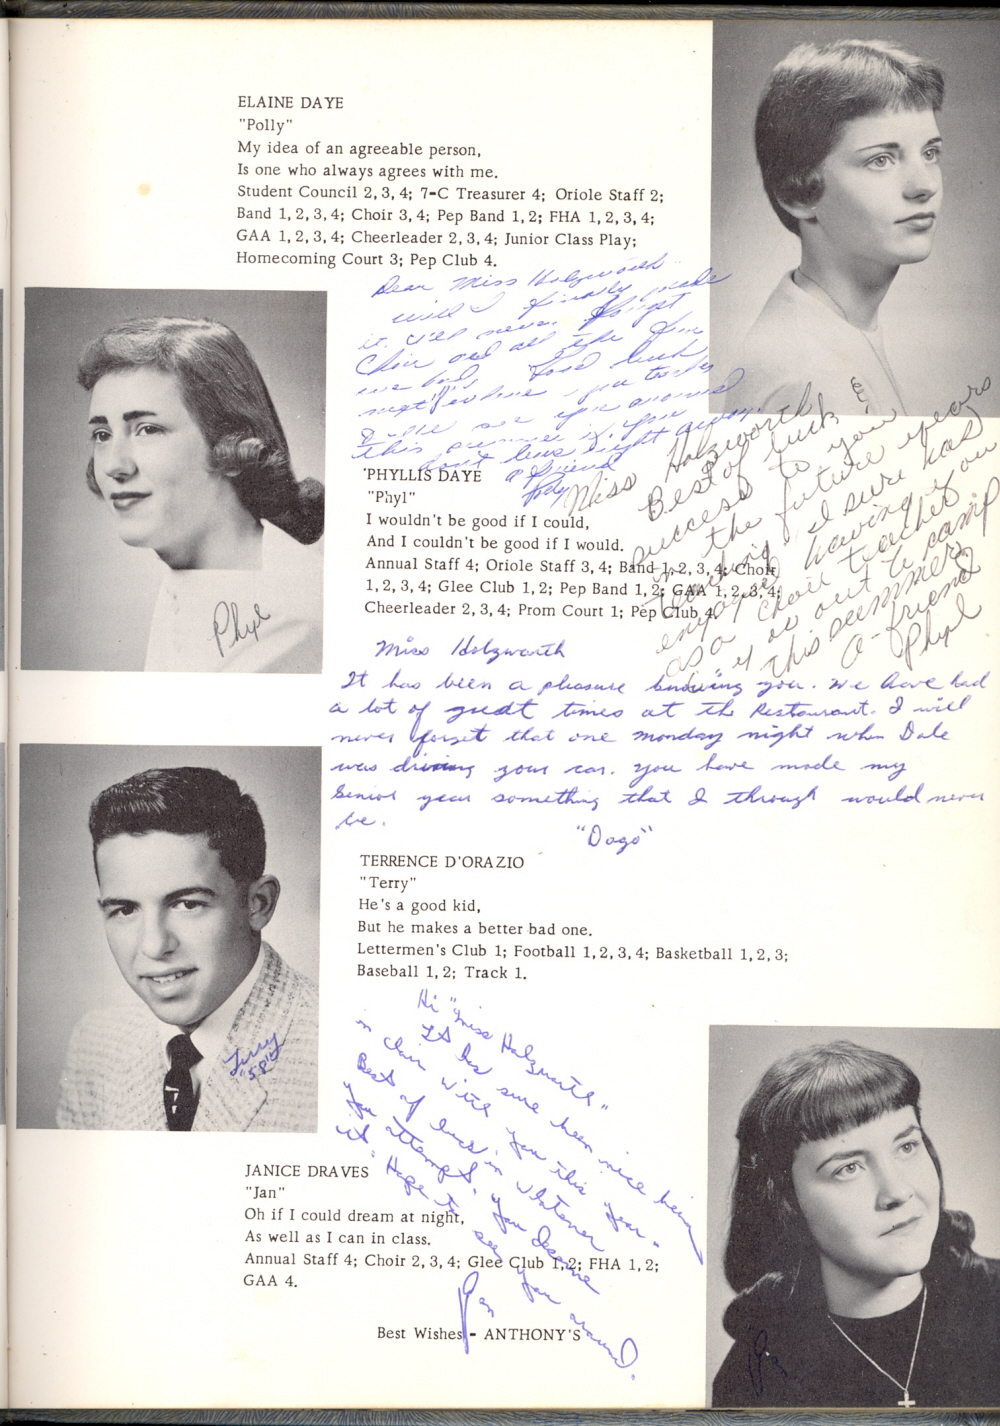 ELAINE DAYE
"Polly"
My idea of an agreeable person,
Is one who always agrees with me.
Student Council 2, 3, 4; 7-C Treasurer 4; Oriole Staff 2;
Band 1, 2, 3, 4; Choir 3, 4; Pep Band 1, 2; FHA 1, 2, 3, 4;
GAA 1, 2, 3, 4; Cheerleader 2, 3, 4; Junior Class Play;
Homecoming Court 3; Pep Club 4.
Dear Miss Holzworth
will I finally made
it. I'll never forget
Choir and all the fun
we had. Good luck
next year where you teach
I'll see you around
this summer if you
don't leave right away.
a friend
Polly
PHYLLIS DAYE
"Phyl"
I wouldn't be good if I could,
And I couldn't be good if I would.
Annual Staff 4; Oriole Staff 3, 4; Band 1, 2, 3, 4; Choir
1, 2, 3, 4; Glee Club 1, 2; Pep Band 1, 2; GAA 1, 2, 3, 4;
Cheerleader 2, 3, 4; Prom Court 1; Pep Club 4.
Phyl
Miss Holzworth
Best of luck &
success to you
in the future years
teaching. I sure has
enjoyed having you
as a choir teacher
out to camp
this summer
a-friend
Phyl
Miss Holzworth
It has been a pleasure knowing you. We have had
a lot of great times at the Restaurant. I will
never forget that one monday night when Dale
was driving your car. you have made my
Senior year something that I through would never
be.
"Dago"
TERRENCE D'ORAZIO
"Terry"
He's a good kid,
But he makes a better bad one.
Lettermen's Club 1; Football 1, 2, 3, 4; Basketball 1, 2, 3;
Baseball 1, 2; Track 1.
Terry
"58"
Hi "Miss Holzworth"
It has sure been nice being
in choir with you this year.
Best of luck in whatever
you attempt, you deserve
it. Hope to see you around.
Jan
JANICE DRAVES
"Jan"
Oh if I could dream at night,
As well as I can in class.
Annual Staff 4; Choir 2, 3, 4; Glee Club 1, 2; FHA 1, 2;
GAA 4.
Best Wishes - ANTHONY'S